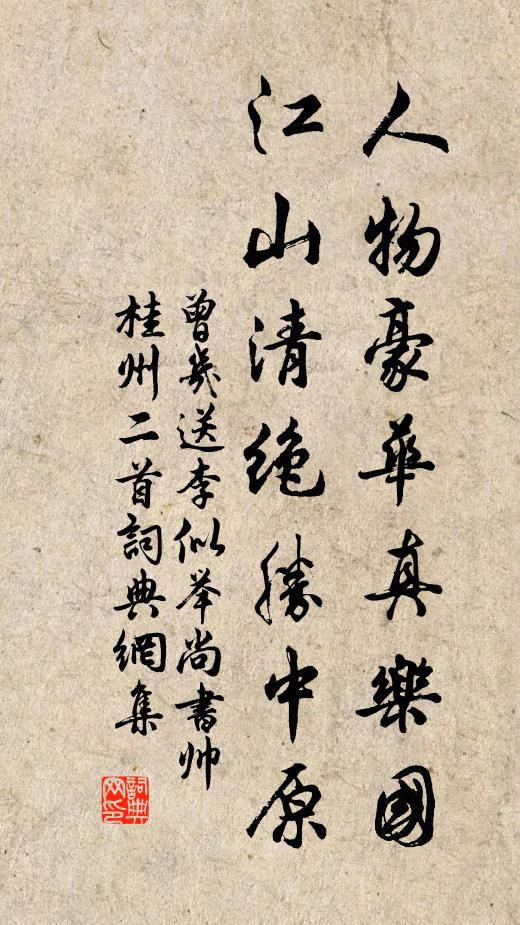 人物豪華真樂國
江山清絶勝中原
曾幾送李似举尚書帅
桂州二首詞典網集
詞典网印